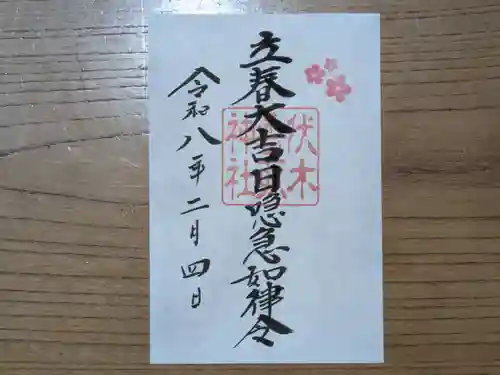 立春大吉日隠急如律令
伏木
神社
令和八年二月四日